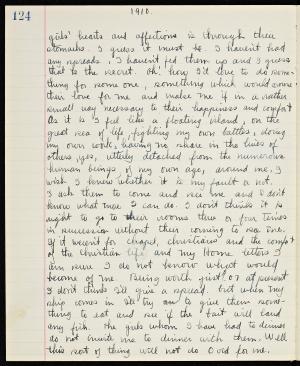 124
1910.
girls' hearts and affections is through their
stomachs. I guess it must be. I haven't had
any spreads, I haven't fed them up and I guess
that is the secret. Oh! how I'd love to do some-
thing for some one, something which would
their love for me and make me if in a rather
small way necessary to their happiness and comfort
As it is I feel like a floating island, on the
great sea of life, fighting my own battles, doing
my own work, having no share in the lives of
others, yes, utterly detached from the numerous
human beings, of my own age, around me. I
wish I knew whether it is my fault or not.
I ask them to come and see me and I don't
know what more I can do. I don't think it is
right to go to their rooms three or four times
in succession without their coming to see one.
If it weren't for chapel, christians and the comfort
of the Christian life and my Home letters I
am sure I do not know what would
become of me. Being worth just .07 at present
I don't think I'll give a spread. but when my
ship comes in I'll try to give them some-
thing to eat and see if the bait will land
any fish. The girls whom I have had to dinner
do not invite me to dinner with them. Well
this sort of thing will not do for me.